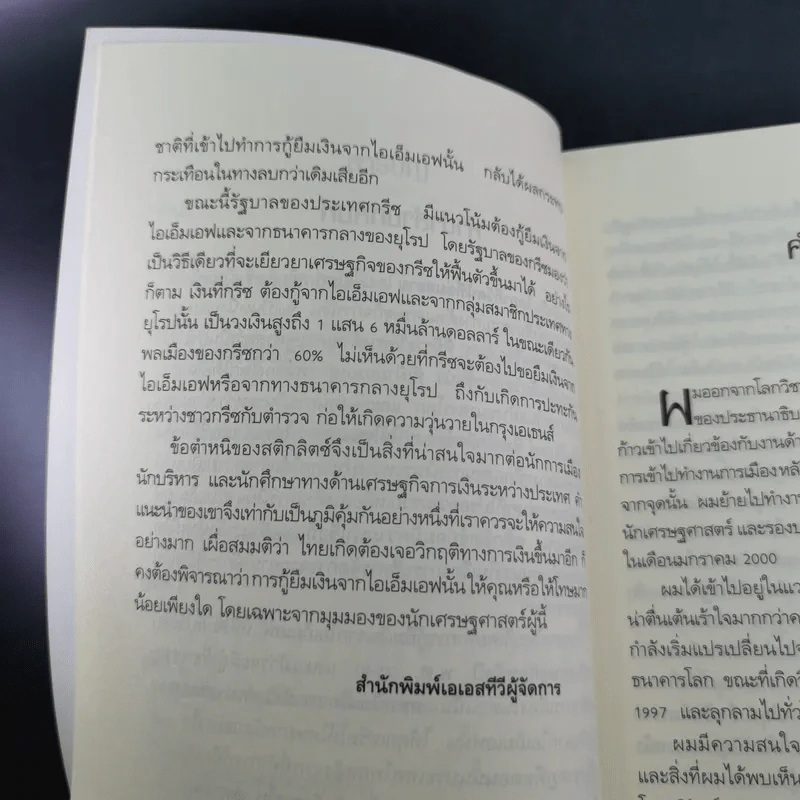 ชาติที่เข้าไปทำการกู้ยืมเงินจากไอเอ็มเอฟนั้น กลับได้ผลกระทบ
กระเทือนในทางลบกว่าเดิมเสียอีก
ขณะนี้รัฐบาลของประเทศกรีซ มีแนวโน้มต้องกู้ยืมเงินจาก
ไอเอ็มเอฟและจากธนาคารกลางของยุโรป โดยรัฐบาลของกรีซมองว่า
เป็นวิธีเดียวที่จะเยียวยาเศรษฐกิจของกรีซให้ฟื้นตัวขึ้นมาได้ อย่างไร
ก็ตาม เงินที่กรีซ ต้องกู้จากไอเอ็มเอฟและจากกลุ่มสมาชิกประเทศทาง
ยุโรปนั้น เป็นวงเงินสูงถึง 1 แสน 6 หมื่นล้านดอลลาร์ ในขณะเดียวกัน
พลเมืองของกรีซกว่า 60% ไม่เห็นด้วยที่กรีซจะต้องไปขอยืมเงินจาก
ไอเอ็มเอฟหรือจากทางธนาคารกลางยุโรป ถึงกับเกิดการปะทะกัน
ระหว่างชาวกรีซกับตำรวจ ก่อให้เกิดความวุ่นวายในกรุงเอเธนส์
ข้อตำหนิของสติกลิตซ์จึงเป็นสิ่งที่น่าสนใจมากต่อนักการเมือง
นักบริหาร และนักศึกษาทางด้านเศรษฐกิจการเงินระหว่างประเทศ คำ
แนะนำของเขาจึงเท่ากับเป็นภูมิคุ้มกันอย่างหนึ่งที่เราควรจะให้ความสนใจ
อย่างมาก เผื่อสมมติว่า ไทยเกิดต้องเจอวิกฤติทางการเงินขึ้นมาอีก ก็
คงต้องพิจารณาว่า การกู้ยืมเงินจากไอเอ็มเอฟนั้น ให้คุณหรือให้โทษมาก
น้อยเพียงใด โดยเฉพาะจากมุมมองของนักเศรษฐศาสตร์ผู้นี้
สำนักพิมพ์เอเอสทีวีผู้จัดการ
ผมออกจากโลกวิชา
ของประธานาธิบ
ก้าวเข้าไปเกี่ยวข้องกับงานด้า
การเข้าไปทำงานการเมืองหลั
จากจุดนั้น ผมย้ายไปทำงา
นักเศรษฐศาสตร์ และรองป
ในเดือนมกราคม 2000
ผมได้เข้าไปอยู่ในแว
น่าตื่นเต้นเร้าใจมากกว่าค
กำลังเริ่มแปรเปลี่ยนไปจ
ธนาคารโลก ขณะที่เกิดวิ
1997 และลุกลามไปทั่ว
ผมมีความสนใจ
และสิ่งที่ผมได้พบเห็น